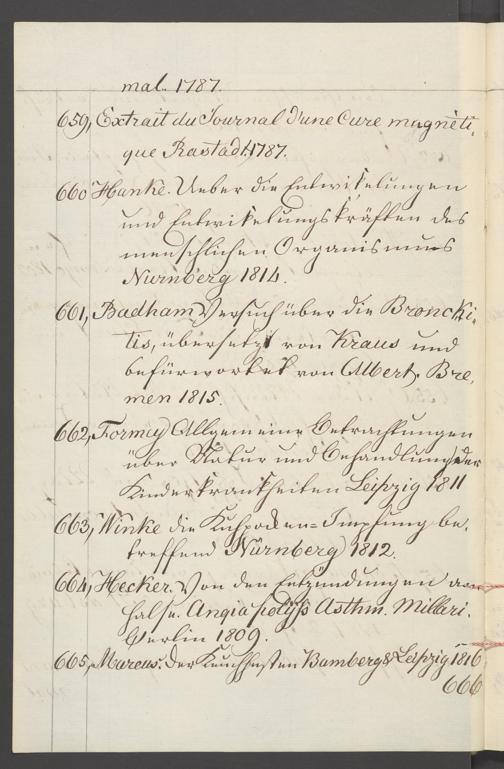 mal. 1787.
659, Extrait du Journal d'une Cure magneti,
que Rastadt 1787.
660 Hanke. Ueber die Entwikelungen
und Entwikelungskräften des
menschlichen Organismus
Nurnberg 1814.
661, Badham Versuch über die Bronchi,
tis, übersetzt von Kraus und
befürwortet von Albert. Bre,
men 1815.
662, Formey Allgemeine Betrachtungen
über Natur und Behandlung der
Kinderkrankheiten Leipzig 1811
663, Winke die Kuhpocken=Impfung be,
treffend Nürnberg 1812.
664, Hecker. Von den Entzündungen am
Halse. Angia polyp Asthm. Millari.
Berlin 1809.
665, Marcus. Der Keuchhusten Bamberg & Leipzig 1816
666